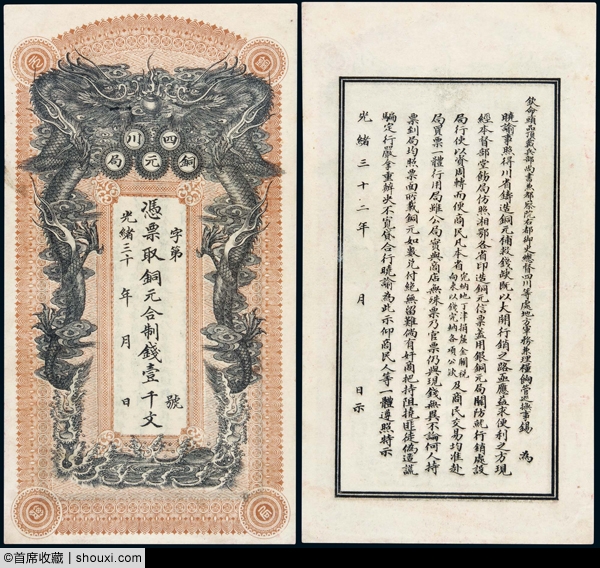 四川
銅元局
字第 號
憑票取銅元合制錢壹千文
光緒三十 年 月 日
欽命頭品頂戴兵部尚書兼都察院右都御史總督四川等處地方軍務兼理糧餉管巡撫事錫 為
曉諭事照得川省鑄造銅元補救錢缺既以大開行銷之路亟應益求便利之方現
經本督部堂飭局仿照湘鄂各省印造銅元信票蓋用銀銅元局關防就行銷處設
局行使以資周轉而便商民凡本省完納地丁津捐釐金關稅向來以錢完納各項公款及商民交易均准赴
局買票一體行用局雖公局實與商店無殊票乃官票仍與現錢無異不論何人持
票到局均照票面所載銅元如數兌付絕無留難倘有奸商把持阻撓匪徒偽造謊
騙定行嚴拿重辦決不寬貸合行曉諭為此示仰商民人等一體遵照特示
光緒三十二年 月 日示
©首席收藏 | shouxi.com